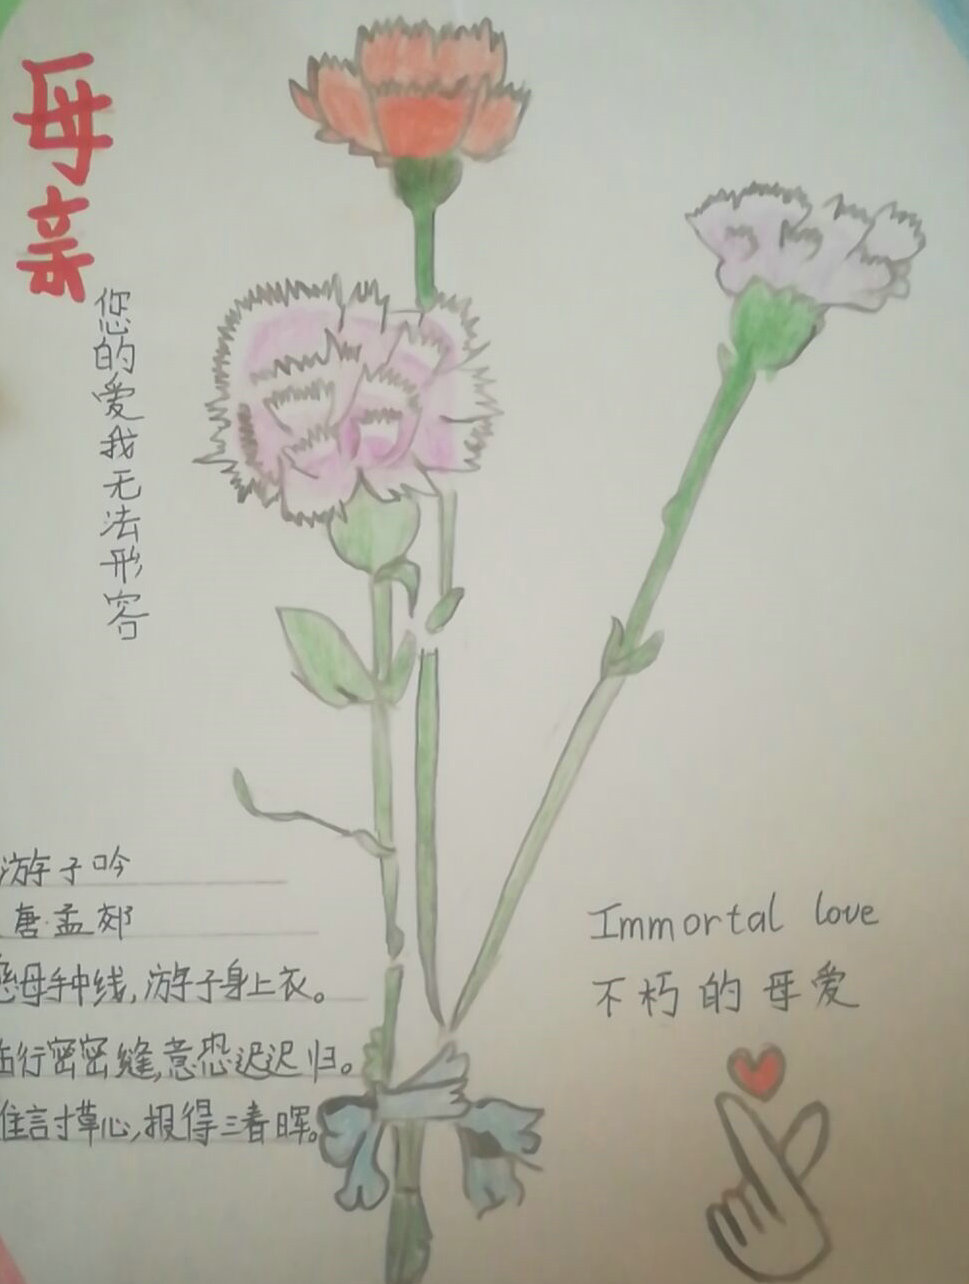 母亲
您的爱我无法形容
游子吟
唐·孟郊
慈母手中线,游子身上衣。
临行密密缝,意恐迟迟归。
谁言寸草心,报得三春晖。
Immortal love
不朽的母爱